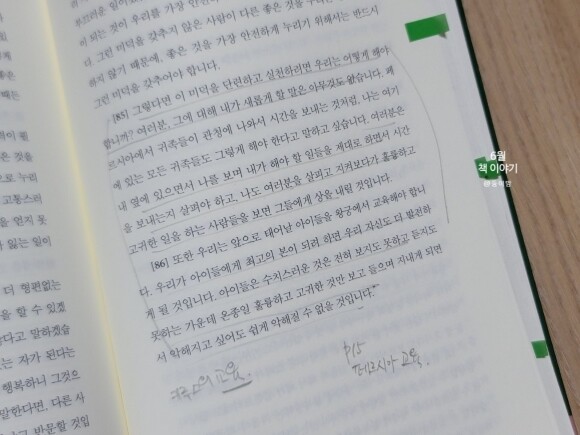 되는 것이 우리를 가장 안전
다. 그런 미덕을 갖추지 않은 사람이 다른 좋은 것을
하지 않기 때문에, 좋은 것을 가장 안전하게 누리기 위해서는 반드시
그런 미덕을 갖추어야 합니다.
[85] 그렇다면 이 미덕을 단련하고 실천하려면 우리는 어떻게 해야
합니까? 여러분, 그에 대해 내가 새롭게 할 말은 아무것도 없습니다. 페
르시아에서 귀족들이 관청에 나와서 시간을 보내는 것처럼, 나는 여기
에 있는 모든 귀족들도 그렇게 해야 한다고 말하고 싶습니다. 여러분은
내 옆에 있으면서 나를 보며 내가 해야 할 일들을 제대로 하면서 시간
을 보내는지 살펴야 하고, 나도 여러분을 살피고 지켜보다가 훌륭하고
고귀한 일을 하는 사람들을 보면 그들에게 상을 내릴 것입니다.
[86] 또한 우리는 앞으로 태어날 아이들을 왕궁에서 교육해야 합니
다. 우리가 아이들에게 최고의 본이 되려 하면 우리 자신도 더 발전하
게 될 것입니다. 아이들은 수치스러운 것은 전혀 보지도 못하고 듣지도
못하는 가운데 온종일 훌륭하고 고귀한 것만 보고 들으며 지내게 되면
서 악해지고 싶어도 쉽게 악해질 수 없을 것입니다."
교육
p15
페르시아 교육.
6월
책 이야기
이 필
은 것을
으로 누리
고통스러
을 얻지 못
않는 일이
더 형편없는
을 할 수 있겠
한다고 말하겠습
는 자가 된다는
행복하니 그것으
말한다면, 다른 사
라고 반문할 것입